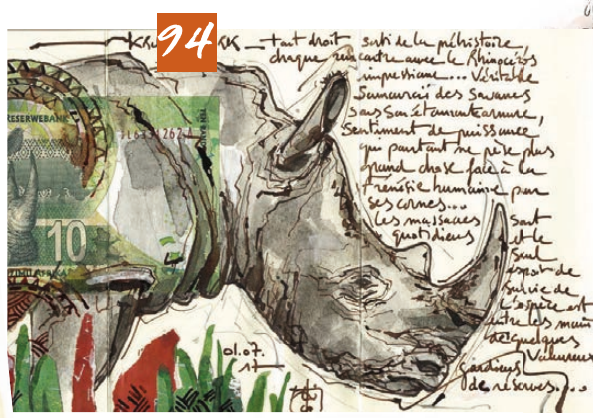 94
tout droit sorti de la préhistoire,
chaque rencontre avec le Rhinocéros
impressionne... Véritable
Samouraï des Savanes
dans son étonnante armure,
Sentiment de puissance
qui pourtant ne pèse plus
grand chose face à la
frénésie humaine pour
ses cornes...
Les massacres
quotidiens
sont
et le
seul
espoir de
survie de
l'espèce est
entre les mains
de quelques
valeureux
gardiens
de réserves....
RESERVEBANK
10
01.07.
17